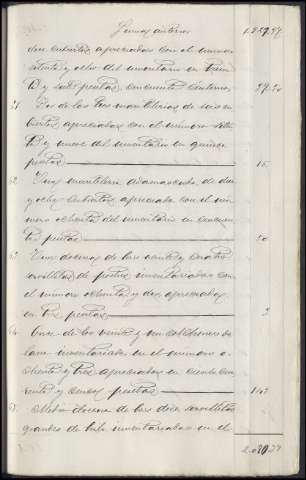 Suma anterior 1.857,77
doce cubiertos, apreciadas con el numero
setenta y ocho del inventario en trein
ta y siete pesetas, cincuenta centimos 37.50
61. Dos de las tres mantelerias de seis cu
biertos, apreciadas con el número seten
ta y nueve del inventario en quince
pesetas 15
62. Una manteleria adamascada de diez
y ocho cubiertos, apreciada con el nú
mero ochenta del inventario en cincuen
ta pesetas 50
63. Una docena de las veinte y cuatro
servilletas de postre, inventariadas con
el numero ochenta y dos apreciadas
en tres pesetas 3
64. Once de los veinte y un colchones de
lana inventariados en el numero o-
chenta y tres apreciados en ciento cua
renta y cinco pesetas
65. Media docena de las doce servilletas
grandes de hilo inventariadas en el